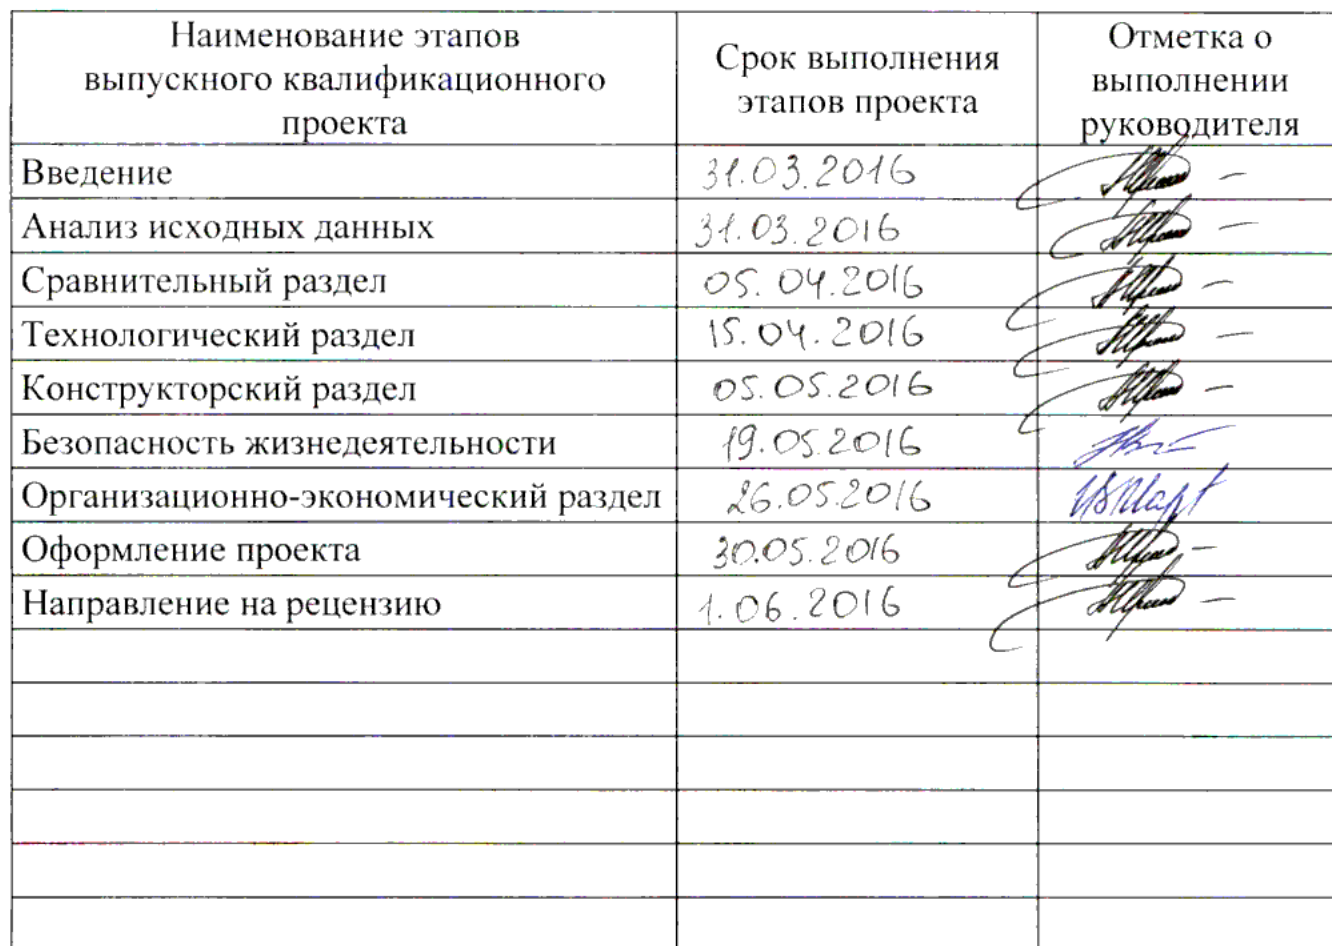 Наименование этапов
выпускного квалификационного
проекта
Срок выполнения
этапов проекта
Отметка о
выполнении
руководителя
Введение 31.03.2016
Анализ исходных данных 31.03.2016
Сравнительный раздел 05.04.2016
Технологический раздел 15.04.2016
Конструкторский раздел 05.05.2016
Безопасность жизнедеятельности 19.05.2016
Организационно-экономический раздел 26.05.2016
Оформление проекта 30.05.2016
Направление на рецензию 1.06.2016